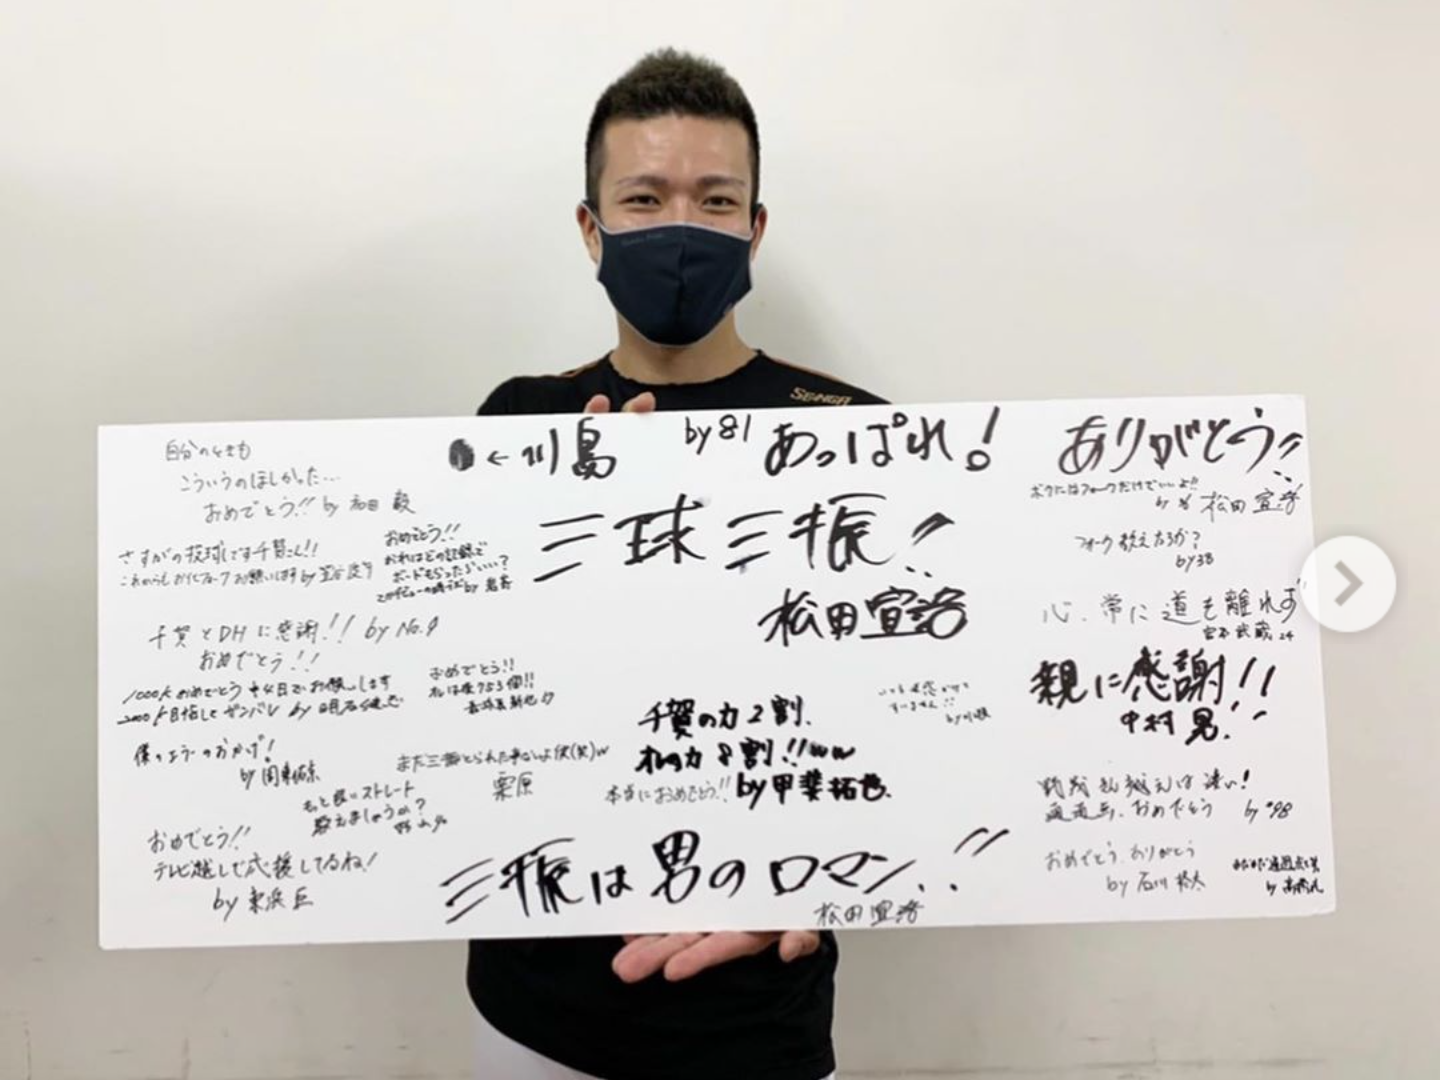 SENGA
自分のときも
こういうのほしかった…
おめでとう!! by 和田 毅
←川島
by 81
あっぱれ!
ありがとう!!
ボクにはフォークだけでいいよ!!
松田宣浩
さすがの投球です千賀くん!!
これからもお化けフォークお願いします by
おめでとう!!
おれはどの記録で
ボードもらったらいい?
by 岩嵜
三球三振!!
松田宣浩
フォーク教えたろか?
by 38
心、常に道を離れず
宮本武蔵 24
千賀とDHに感謝!! by No.9
おめでとう!!
1000K おめでとう 中4日でお願いします
2000K目指してガンバレ by 明石健志
おめでとう!!
私は後753個!!
親に感謝!!
中村 晃!!
千賀の力2割.
オレの力8割!!ww
by 甲斐拓也.
本当におめでとう!!
すいません!!
僕の おかげ!
by 関本
また三振とられた
栗原
もっと良いストレート
教えましょうか?
おめでとう!!
テレビ越しで応援してるね!
by 東浜 巨
三振は男のロマン!!
松田宣浩
は凄い!
通過点、おめでとう by #98
おめでとう ありがとう
by 石川 柊太
まだまだ通過点
by 高橋礼